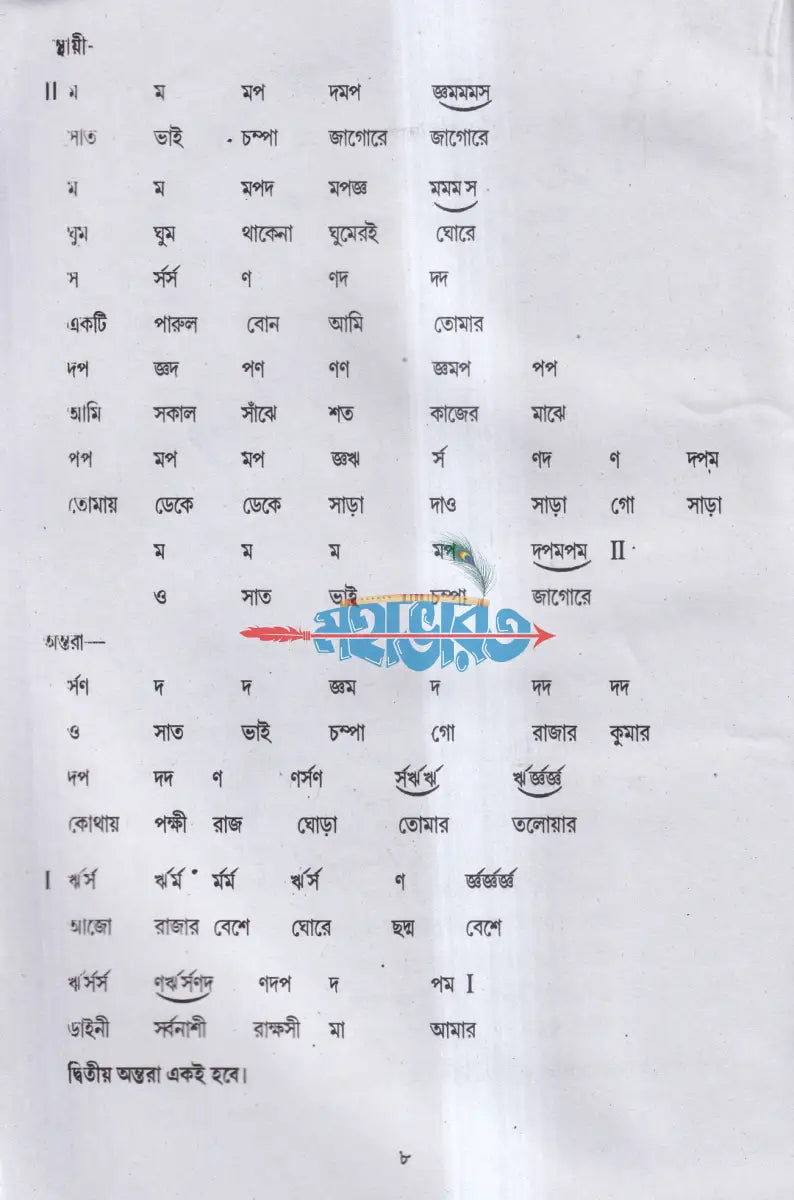 স্থায়ী-
II ম ম মপ দমপ জ্ঞমমমস
সাত ভাই চম্পা জাগোরে জাগোরে
ম ম মপদ মপজ্ঞ মমম স
ঘুম ঘুম থাকেনা ঘুমেরই ঘোরে
স র্সর্স ণ ণদ দদ
একটি পারুল বোন আমি তোমার
দপ জ্ঞদ পণ ণণ জ্ঞমপ পপ
আমি সকাল সাঁঝে শত কাজের মাঝে
পপ মপ মপ জ্ঞঋ র্স ণদ ণ দপম
তোমায় ডেকে ডেকে সাড়া দাও সাড়া গো সাড়া
ম ম ম মপ দপমপম II
ও সাত ভাই চম্পা জাগোরে
মহাভারত
অন্তরা—
র্সণ দ দ জ্ঞম দ দদ দদ
ও সাত ভাই চম্পা গো রাজার কুমার
দপ দদ ণ ণর্সণ র্সর্ঋর্ঋ র্ঋর্জ্ঞর্জ্ঞ
কোথায় পক্ষী রাজ ঘোড়া তোমার তলোয়ার
I র্ঋর্স র্ঋর্ম র্মর্ম র্ঋর্স ণ র্জ্ঞর্জ্ঞর্জ্ঞ
আজো রাজার বেশে ঘোরে ছদ্ম বেশে
র্ঋর্সর্স ণর্ঋর্সণদ ণদপ দ পম I
ডাইনী সর্বনাশী রাক্ষসী মা আমার
দ্বিতীয় অন্তরা একই হবে।
৮